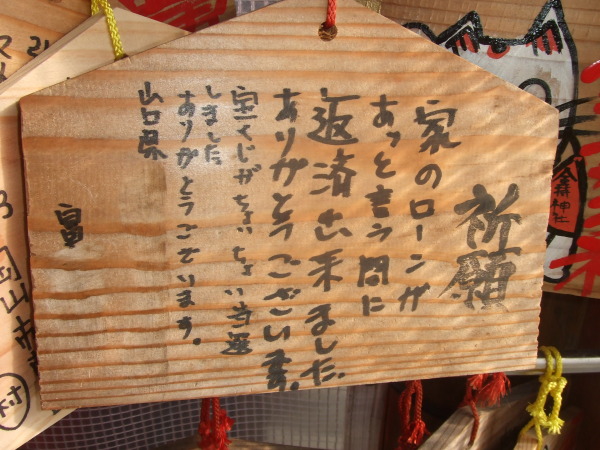 祈願
家のローンが
あっと言う間に
返済出来ました
ありがとうございます。
宝くじがちょいちょい当選
しました
ありがとうございます。
山口県
岡山市
村
金持神社